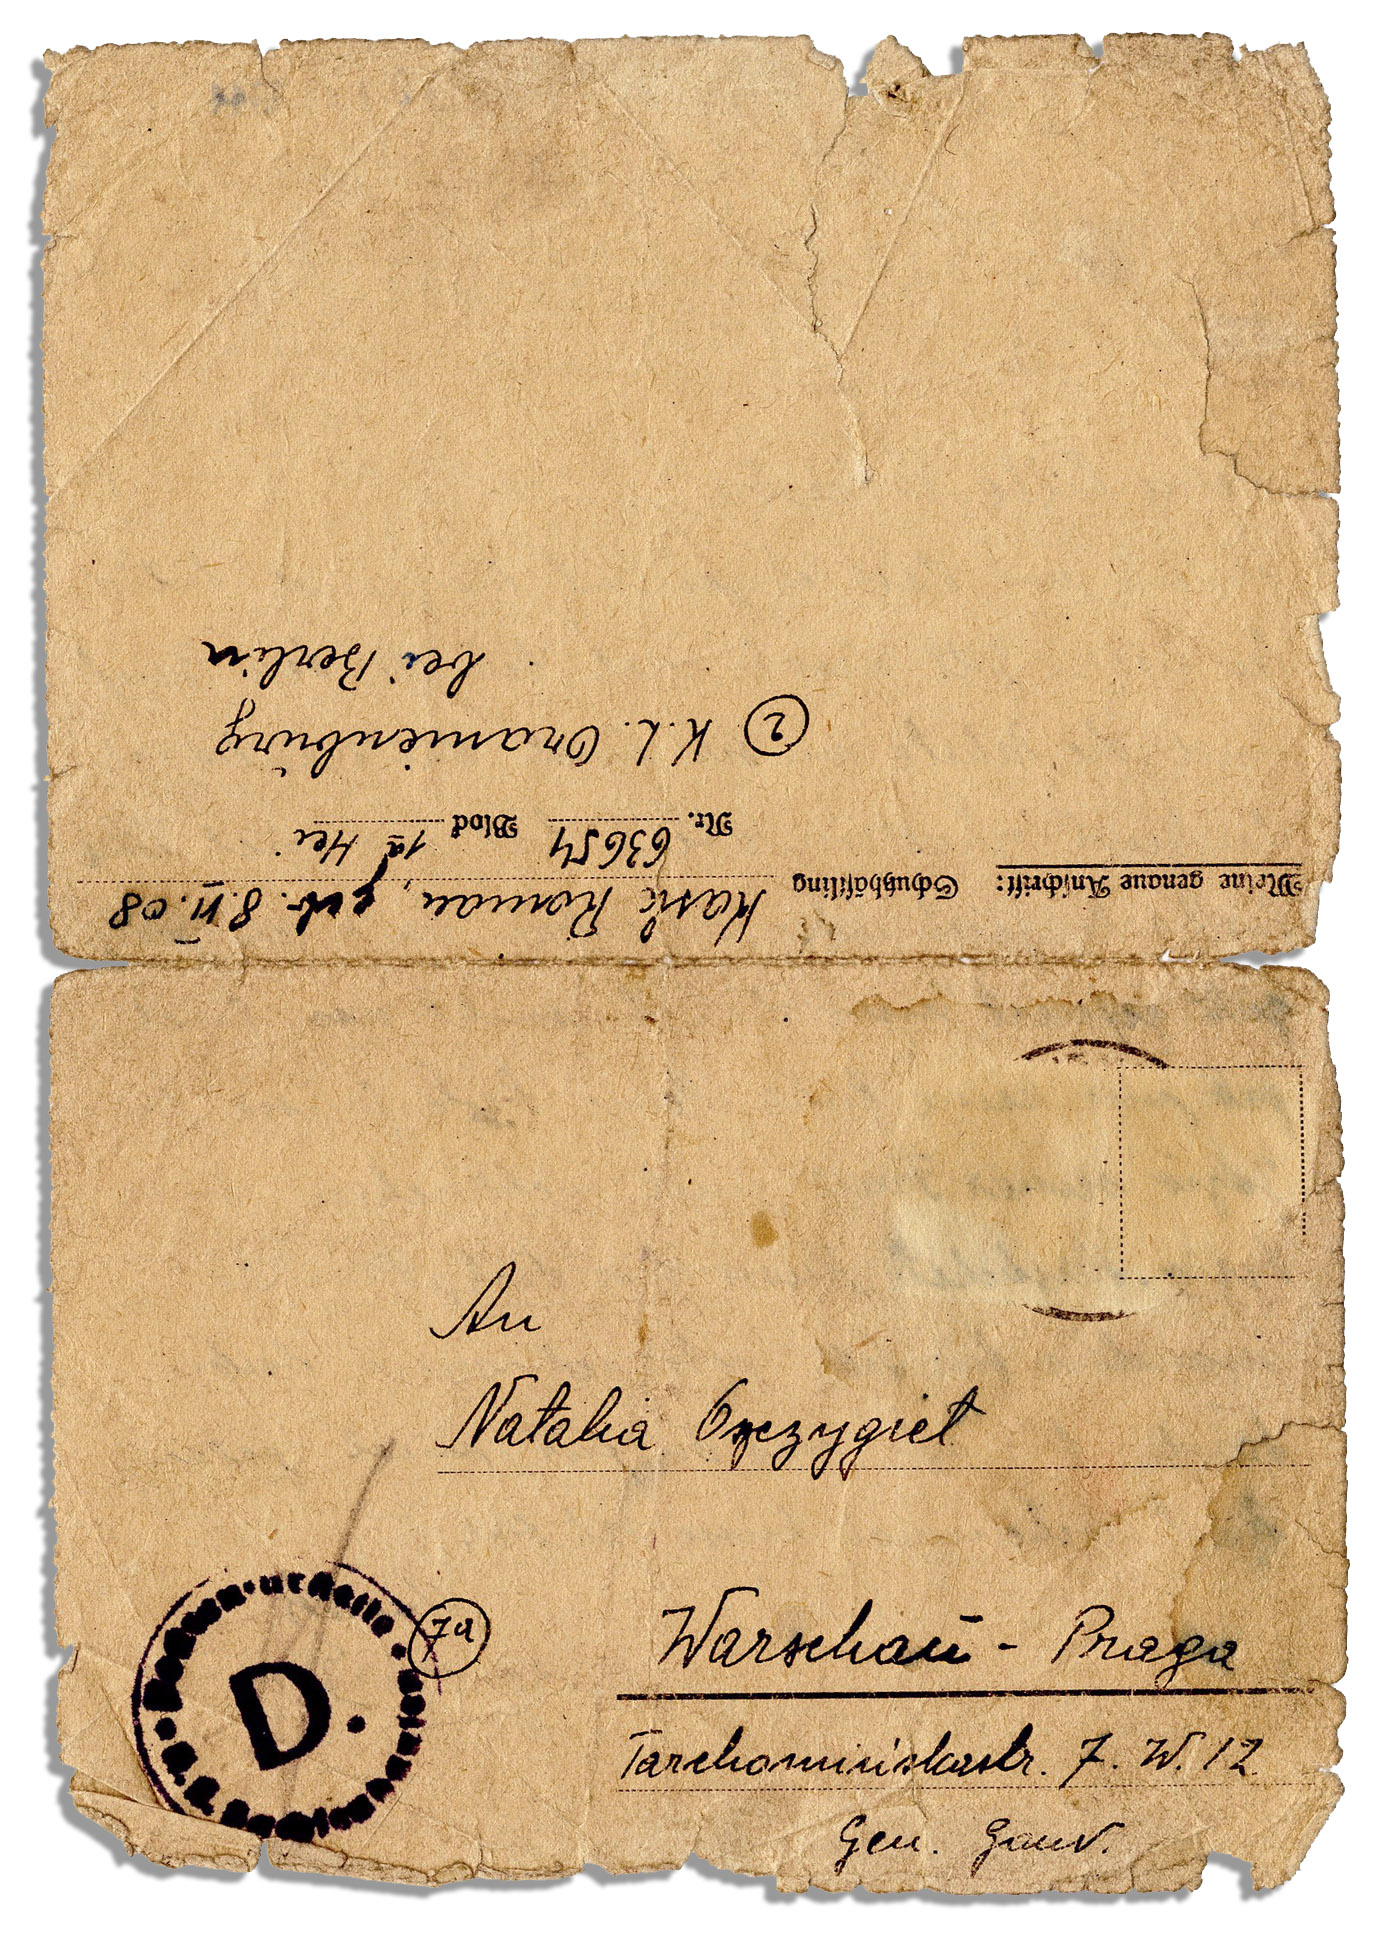 Meine genaue Anschrift: Schutzhäftling
Kasik Roman, geb. 8.II.08
Nr. 63654 Block 1a Hei
② K.L. Oranienburg
bei Berlin
An
Natalia
Warschau - Praga
7a
D.
Tarchomińskastr. 7. W. 12
Gen. Gouv.